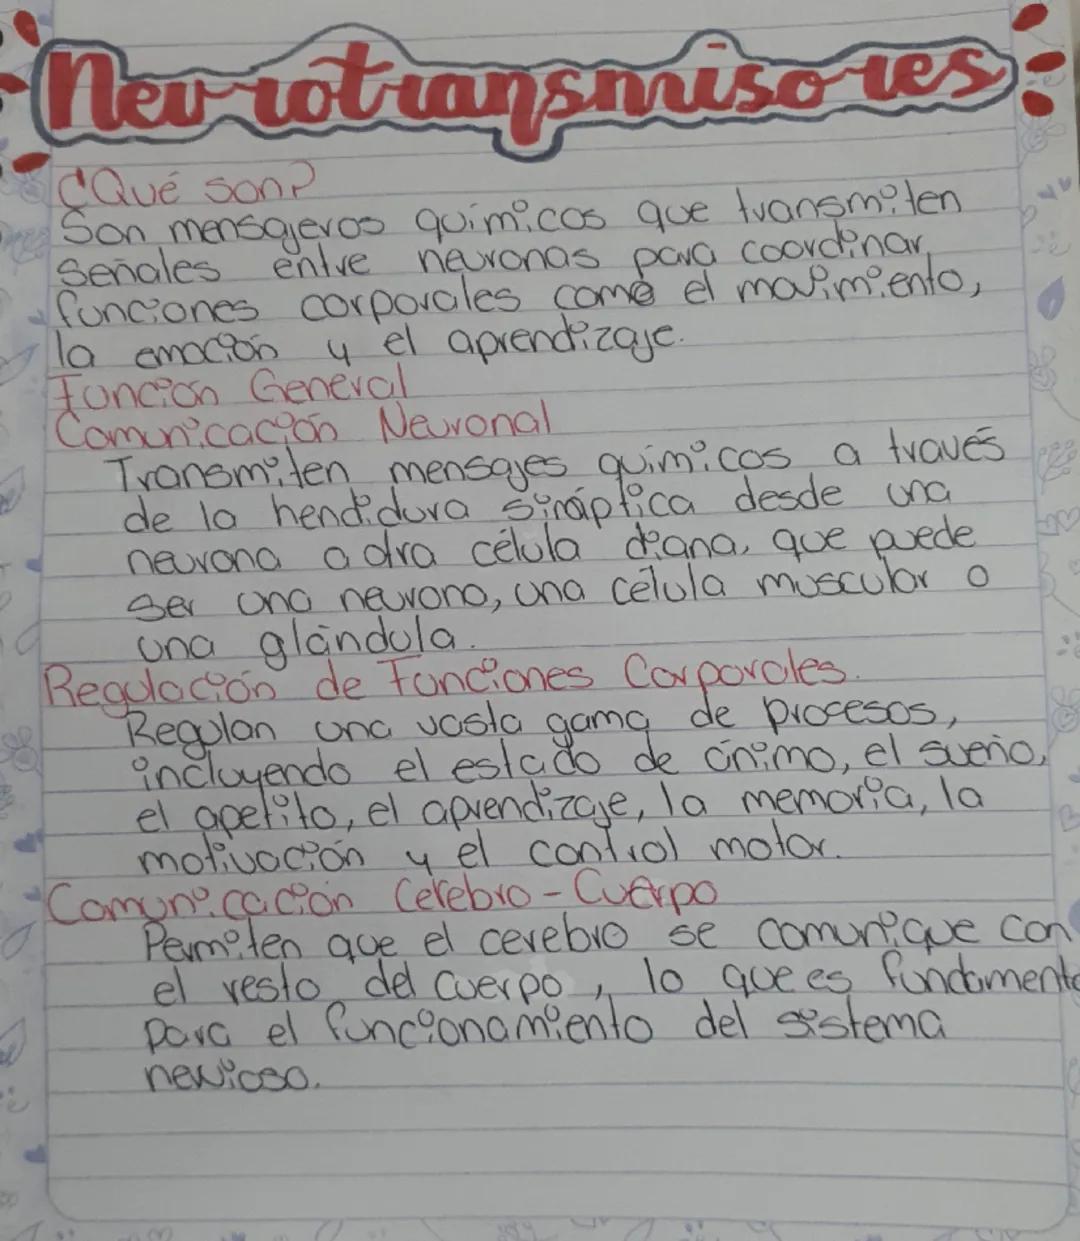 Neurotransmisores
¿Qué son?
Son mensajeros químicos que transmiten
señales entre neuronas para coordinar
funciones corporales como el movimiento,
la emoción y el aprendizaje.
Función General
Comunicación Neuronal
Transmiten mensajes químicos a través
de la hendidura sináptica desde una
neurona a otra célula diana, que puede
ser una neurona, una célula muscular o
una glándula.
Regulación de Funciones Corporales.
Regulan una vasta gama de procesos,
incluyendo el estado de ánimo, el sueño,
el apetito, el aprendizaje, la memoria, la
motivación y el control motor.
Comunicación Cerebro - Cuerpo
Permiten que el cerebro se comunique con
el resto del cuerpo, lo que es fundamenta
para el funcionamiento del sistema
nervioso.